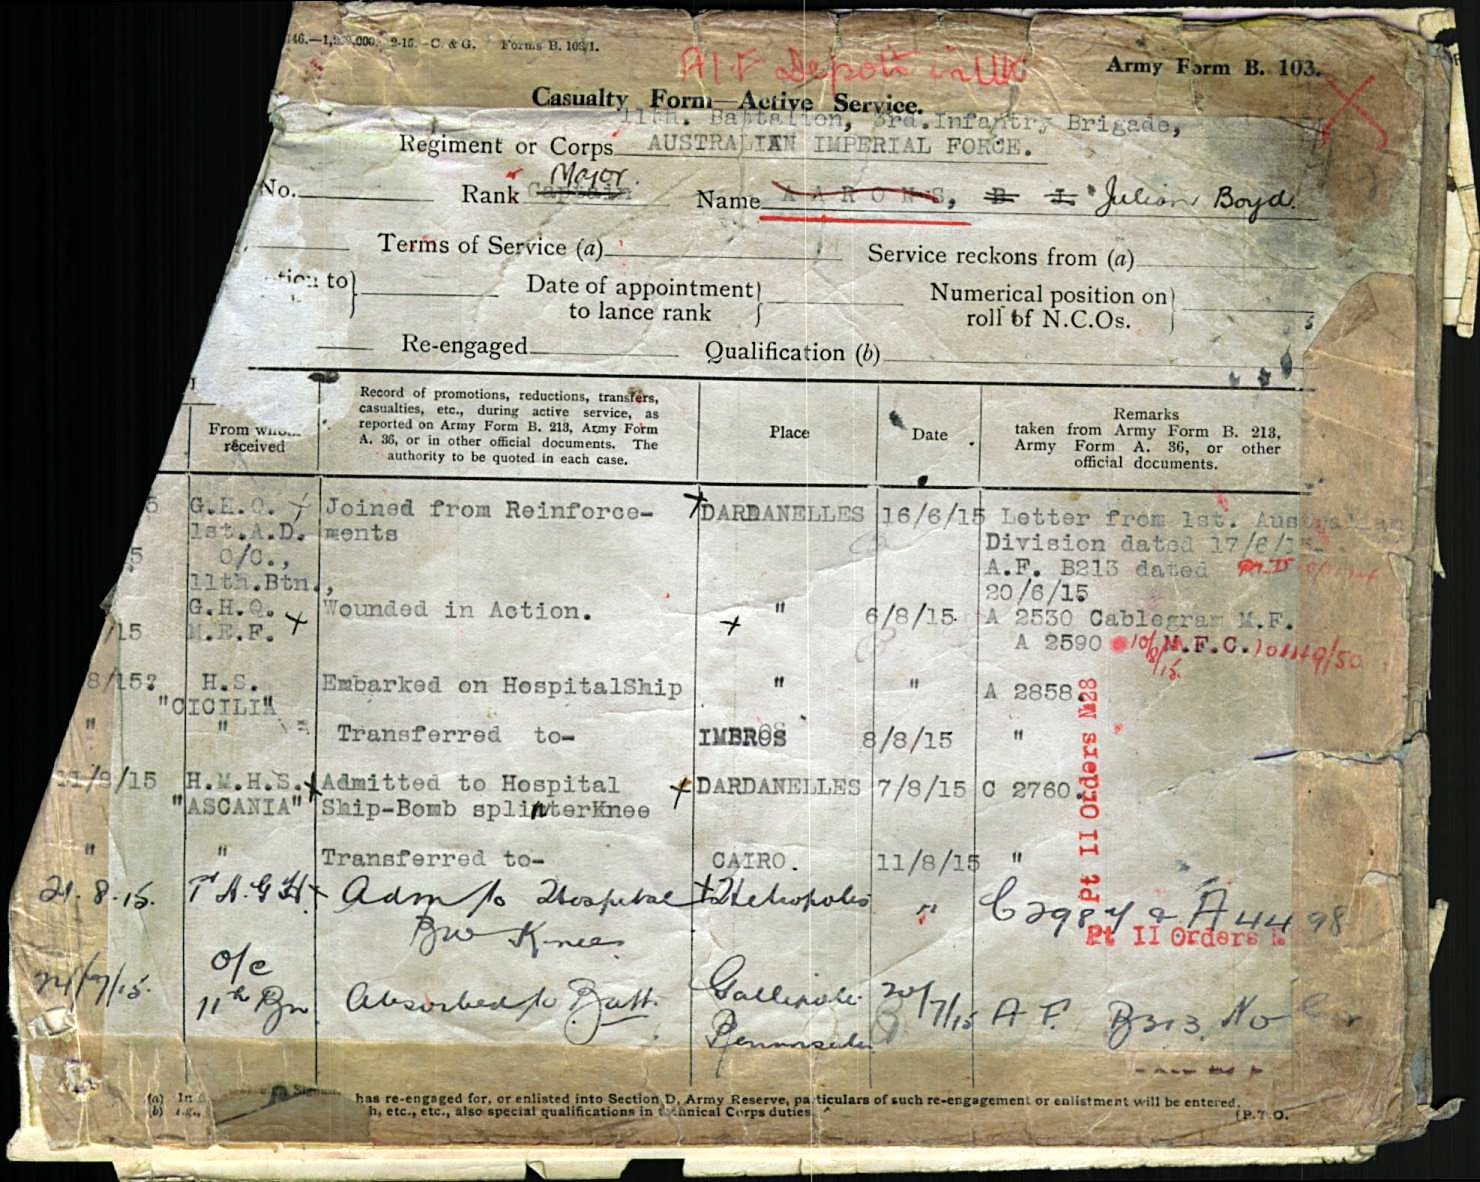 2-15.-C. & G. Forms B. 103/1.
AIF Depots in UK
Army Form B. 103.
Casualty Form—Active Service.
11th. Battalion, 3rd.Infantry Brigade,
Regiment or Corps AUSTRALIAN IMPERIAL FORCE.
Major
No. Rank Captain Name AARONS, Julian Boyd.
Terms of Service (a) Service reckons from (a)
to} Date of appointment to lance rank } Numerical position on roll of N.C.Os. }
Re-engaged Qualification (b)
From whom received
Record of promotions, reductions, transfers, casualties, etc., during active service, as reported on Army Form B. 213, Army Form A. 36, or in other official documents. The authority to be quoted in each case.
Place
Date
Remarks taken from Army Form B. 213, Army Form A. 36, or other official documents.
G.H.Q. Joined from Reinforce- DARDANELLES 16/6/15 Letter from 1st. Australian
1st.A.D. ments Division dated 17/6/15.
5 O/C., A.F. B213 dated
11th.Btn., 20/6/15
G.H.Q. Wounded in Action. " 6/8/15 A 2530 Cablegram M.F.
/15 M.E.F. A 2590 M.F.C.
8/15? H.S. Embarked on HospitalShip " " A 2858.
"CICILIA"
" " Transferred to- IMBROS 8/8/15 "
H.M.H.S. Admitted to Hospital DARDANELLES 7/8/15 C 2760.
"ASCANIA" Ship-Bomb splinterKnee
" " Transferred to- CAIRO. 11/8/15 "
Pt II Orders №28
21.8.15. 1st A.G.H. Adm to Hospital Heliopolis " C2987 & A4498
BW Knee
Pt II Orders
O/C
11th Bn Absorbed to Batt. Gallipoli 20/7/15 A F. B213. No
Peninsula
has re-engaged for, or enlisted into Section D, Army Reserve, particulars of such re-engagement or enlistment will be entered.
(b) e.g., h, etc., etc., also special qualifications in technical Corps duties.
(P.T.O.